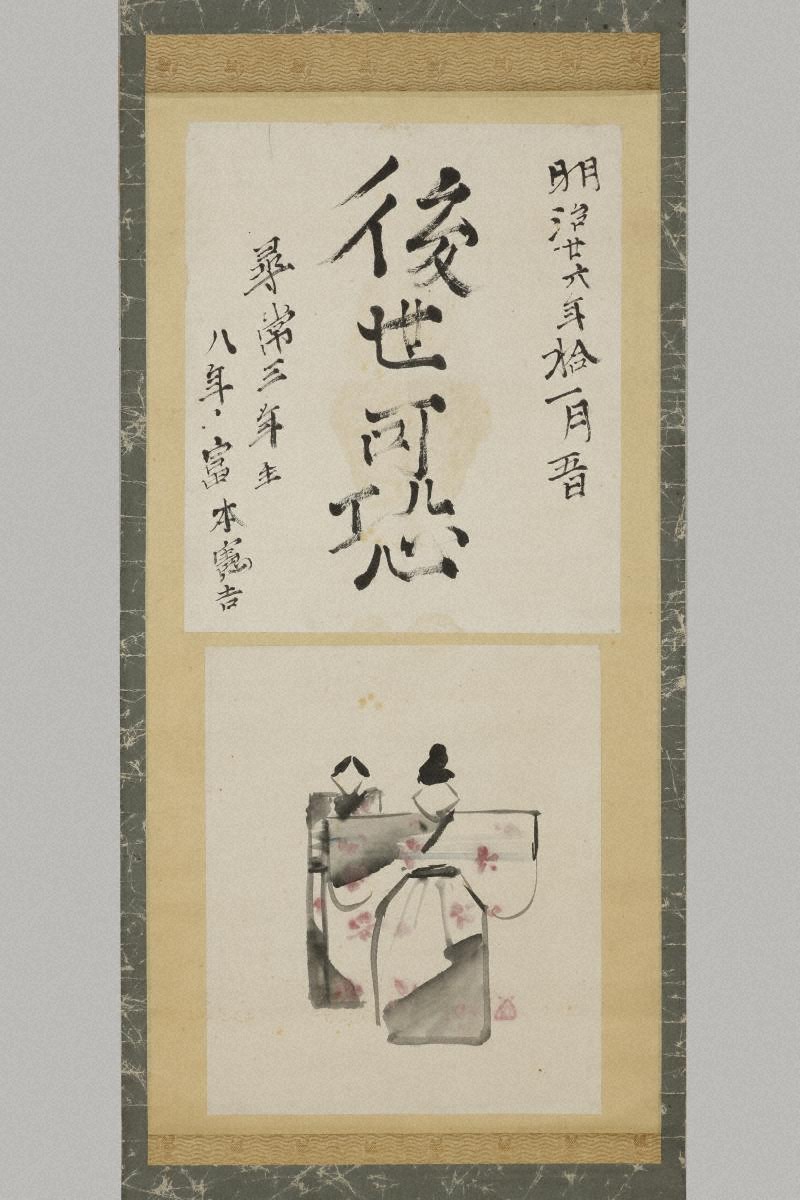 明治廿六年拾一月五日
後世可恐
尋常三年生
八年、富本憲吉